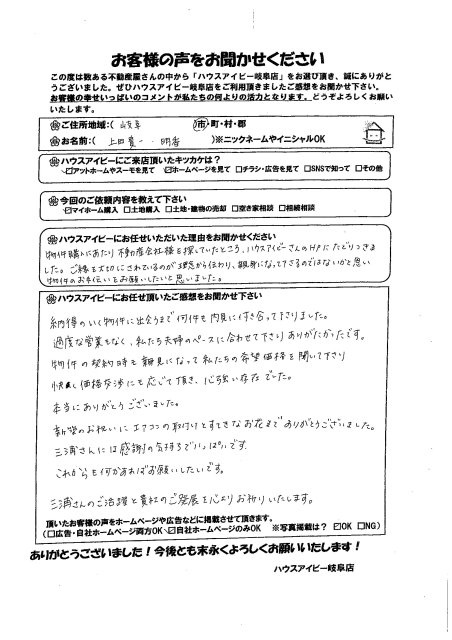 お客様の声をお聞かせください
この度は数ある不動産屋さんの中から「ハウスアイビー岐阜店」をお選び頂き、誠にありがと
うございました。ぜひハウスアイビー岐阜店をご利用頂きましたご感想をお聞かせ下さい。
お客様の幸せいっぱいのコメントが私たちの何よりの活力となります。どうぞよろしくお願い
いたします。
ご住所地域：（岐阜 市・町・村・郡
お名前：（上田 明香 ）※ニックネームやイニシャルOK
ハウスアイビーにご来店頂いたキッカケは？
☑アットホームやスーモを見て ☑ホームページを見て □チラシ・広告を見て □SNSで知って □その他
今回のご依頼内容を教えて下さい
☑マイホーム購入 □土地購入 □土地・建物の売却 □空き家相談 □相続相談
ハウスアイビーにお任せいただいた理由をお聞かせください
物件購入にあたり不動産会社様を探していたところ、ハウスアイビーさんのHPにたどりつきま
した。ご縁を大切にされているのが理念から伝わり、親身になって下さるのではないかと思い
物件のお手伝いをお願いしたいと思いました。
ハウスアイビーにお任せ頂いたご感想をお聞かせ下さい
納得のいく物件に出会うまで何件も内見に付き合って下さりました。
過度な営業もなく、私たち夫婦のペースに合わせて下さりありがたかったです。
物件の契約時も親見になって私たちの希望価格を聞いて下さり
快く価格交渉にも応じて頂き、心強い存在でした。
本当にありがとうございました。
新築のお祝いにエアコンの取付けとすてきなお花までありがとうございました。
三浦さんには感謝の気持ちでいっぱいです。
これからも何かあればお願いしたいです。
三浦さんのご活躍と貴社のご発展を心よりお祈りいたします。
頂いたお客様の声をホームページや広告などに掲載させて頂きます。
（□広告・自社ホームページ両方OK ☑自社ホームページのみOK ※写真掲載は？ ☑OK □NG）
ありがとうございました！今後とも末永くよろしくお願いいたします！
ハウスアイビー岐阜店